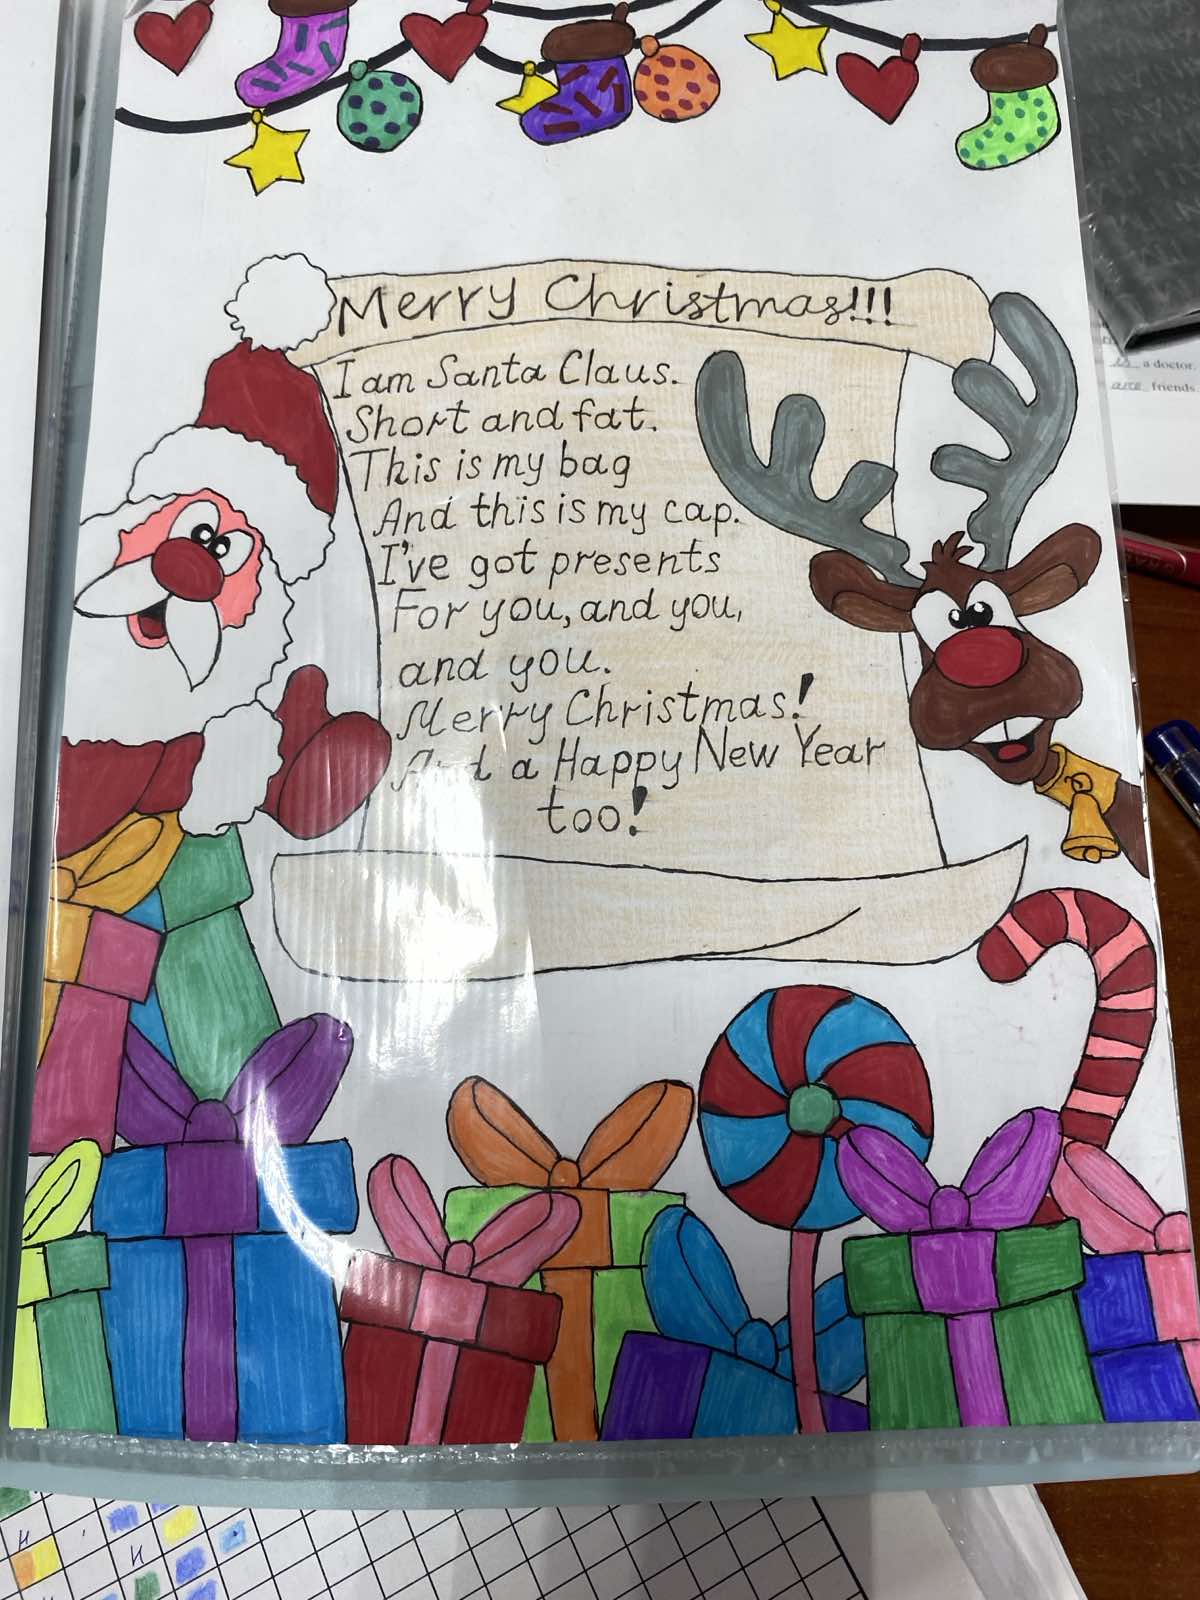 Merry Christmas!!!
I am Santa Claus.
Short and fat.
This is my bag
And this is my cap.
I've got presents
For you, and you,
and you.
Merry Christmas!
And a Happy New Year
too!
is a doctor.
are friends
И
И